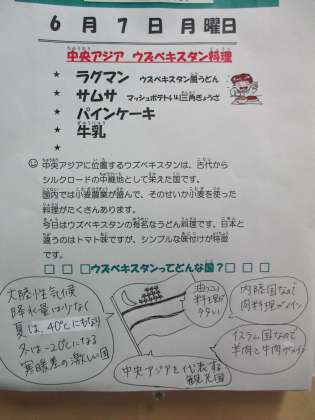 6月7日月曜日
中央アジア ウズベキスタン料理
★ ラグマン ウズベキスタン風うどん
★ サムサ マッシュポテト入り三角ぎょうざ
★ パインケーキ
★ 牛乳
★
中央アジアに位置するウズベキスタンは、古代から
シルクロードの中継地として栄えた国です。
国内では小麦農業が盛んで、そのせいか小麦を使った
料理がたくさんあります。
今日はウズベキスタンの有名なうどん料理です。日本と
違うのはトマト味ですが、シンプルな味付けが特徴
です。
□□□ウズベキスタンってどんな国？□□□
大陸性気候
降水量は少なく
夏は、40℃にもなり
冬は-20℃になる
寒暖差の激しい国
油っこい
料理が
多い
内陸国なので
肉料理がメイン
イスラム国なので
羊肉と牛肉がメイン
中央アジアを代表する
観光国